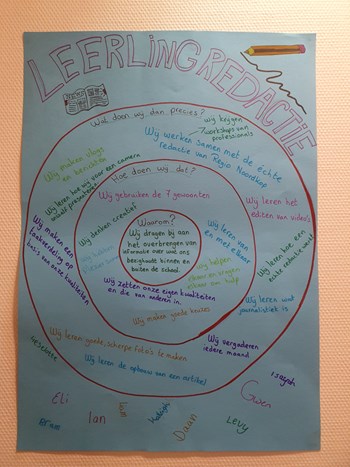 LEERLINGREDACTIE
Wat doen wij dan precies?
Wij krijgen
workshops van
professionals
Wij werken samen met de échte
redactie van Regio Noordkop
Wij maken vlogs
en berichten
Wij leren hoe wij voor een camera
moet presenteren
Hoe doen wij dat?
Wij gebruiken de 7 gewoonten
Wij leren het
editen van video's
Wij denken creatief
Waarom?
Wij dragen bij aan
het overbrengen van
informatie over wat ons
bezighoudt binnen en
buiten de school.
Wij leren van
en met elkaar
Wij maken een
taakverdeling op
basis van onze kwaliteiten
Wij hebben
Wij helpen
elkaar en vragen
elkaar om hulp
Wij leren hoe een
echte redactie werkt
Wij zetten onze eigen kwaliteiten
en die van anderen in.
Wij maken goede keuzes
Wij leren wat
journalistiek is
Wij leren goede, scherpe foto's te maken
Wij vergaderen
iedere maand
Wij leren de opbouw van een artikel
Eli
Ian
Daan
Levy
Gwen